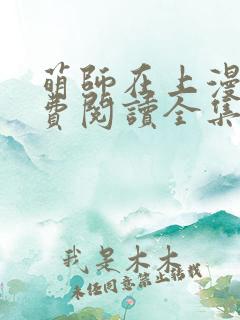 萌師在上漫
費閱讀全集
我是木木
未经同意禁止搭载